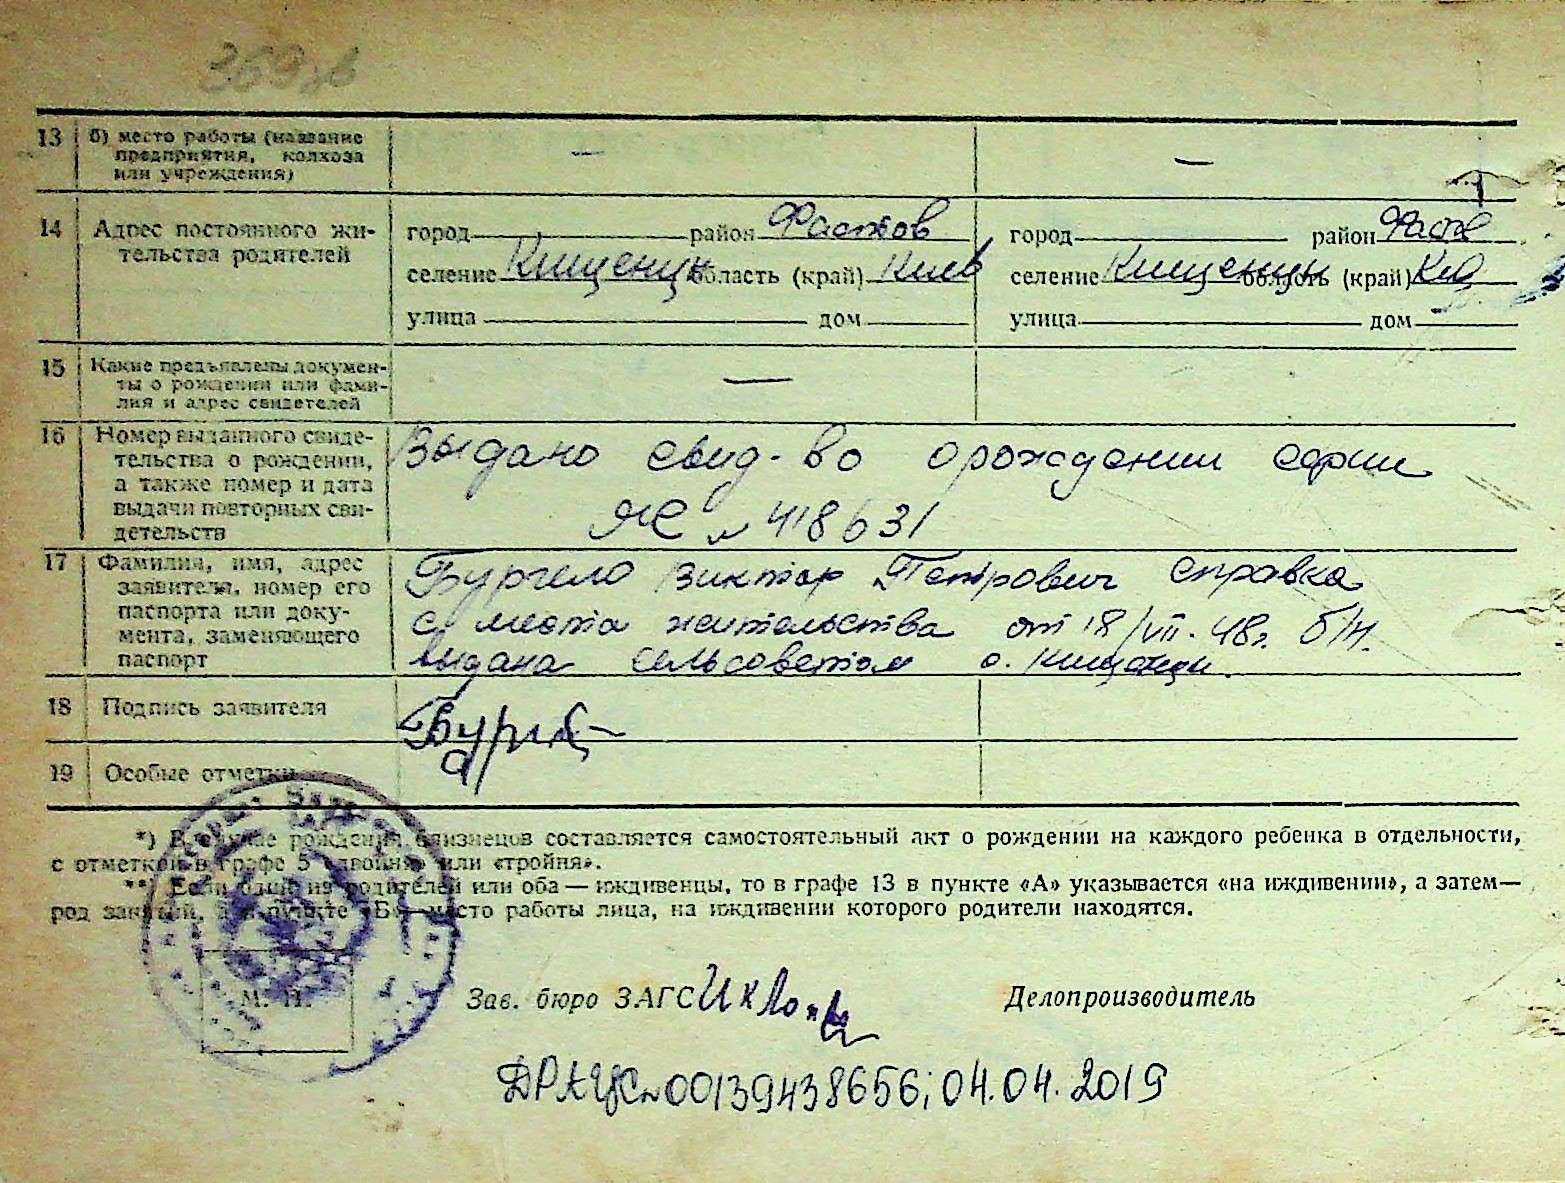 369
13 б) место работы (название — —
предприятия, колхоза
или учреждения)
14 Адрес постоянного жи- город район Фастов город район Фаств
тельства родителей селение Кищенци область (край) Киев селение Кищенци область (край)
улица дом улица дом
15 Какие предъявлены докумен- —
ты о рождении или фами-
лия и адрес свидетелей
16 Номер выданного свиде- Выдано свид-во о рождении серии
тельства о рождении,
а также номер и дата
выдачи повторных сви- ЯС № 418631
детельств
17 Фамилия, имя, адрес Бургело Виктор Петрович справка
заявителя, номер его
паспорта или доку- с места жительства от 18/VII. 48г. б/н.
мента, заменяющего
паспорт выдана сельсоветом с. Кищенци.
18 Подпись заявителя
19 Особые отметки
*) В случае рождения близнецов составляется самостоятельный акт о рождении на каждого ребенка в отдельности,
с отметкой в графе 5 «двойня» или «тройня».
**) Если один из родителей или оба — иждивенцы, то в графе 13 в пункте «А» указывается «на иждивении», а затем—
род занятий, а в пункте «Б»—место работы лица, на иждивении которого родители находятся.
М. П. Зав. бюро ЗАГС Делопроизводитель
ДРАЦС № 00139438656; 04.04.2019